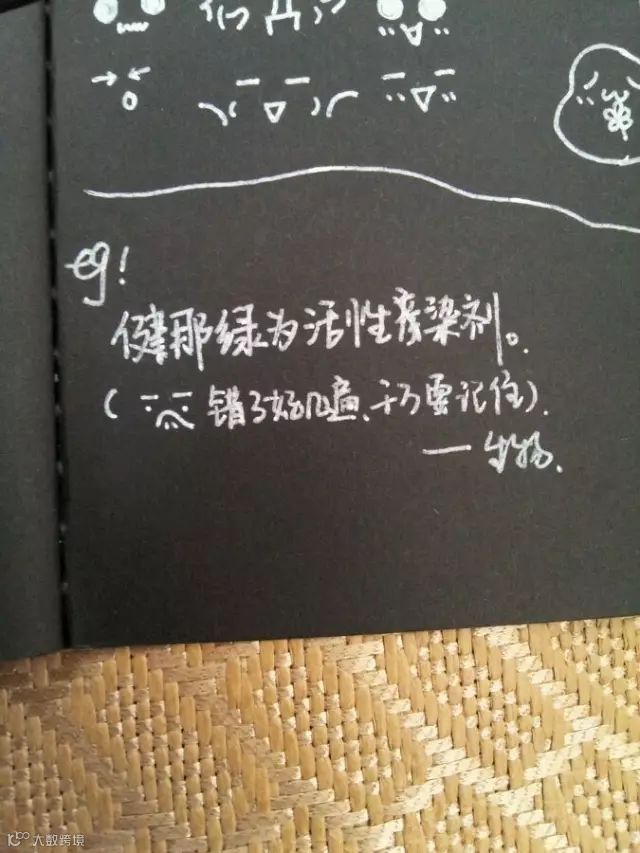 eg!
健那绿为活性染剂。
( 错了好几遍、千万要记住).
— 生物.
大数跨境